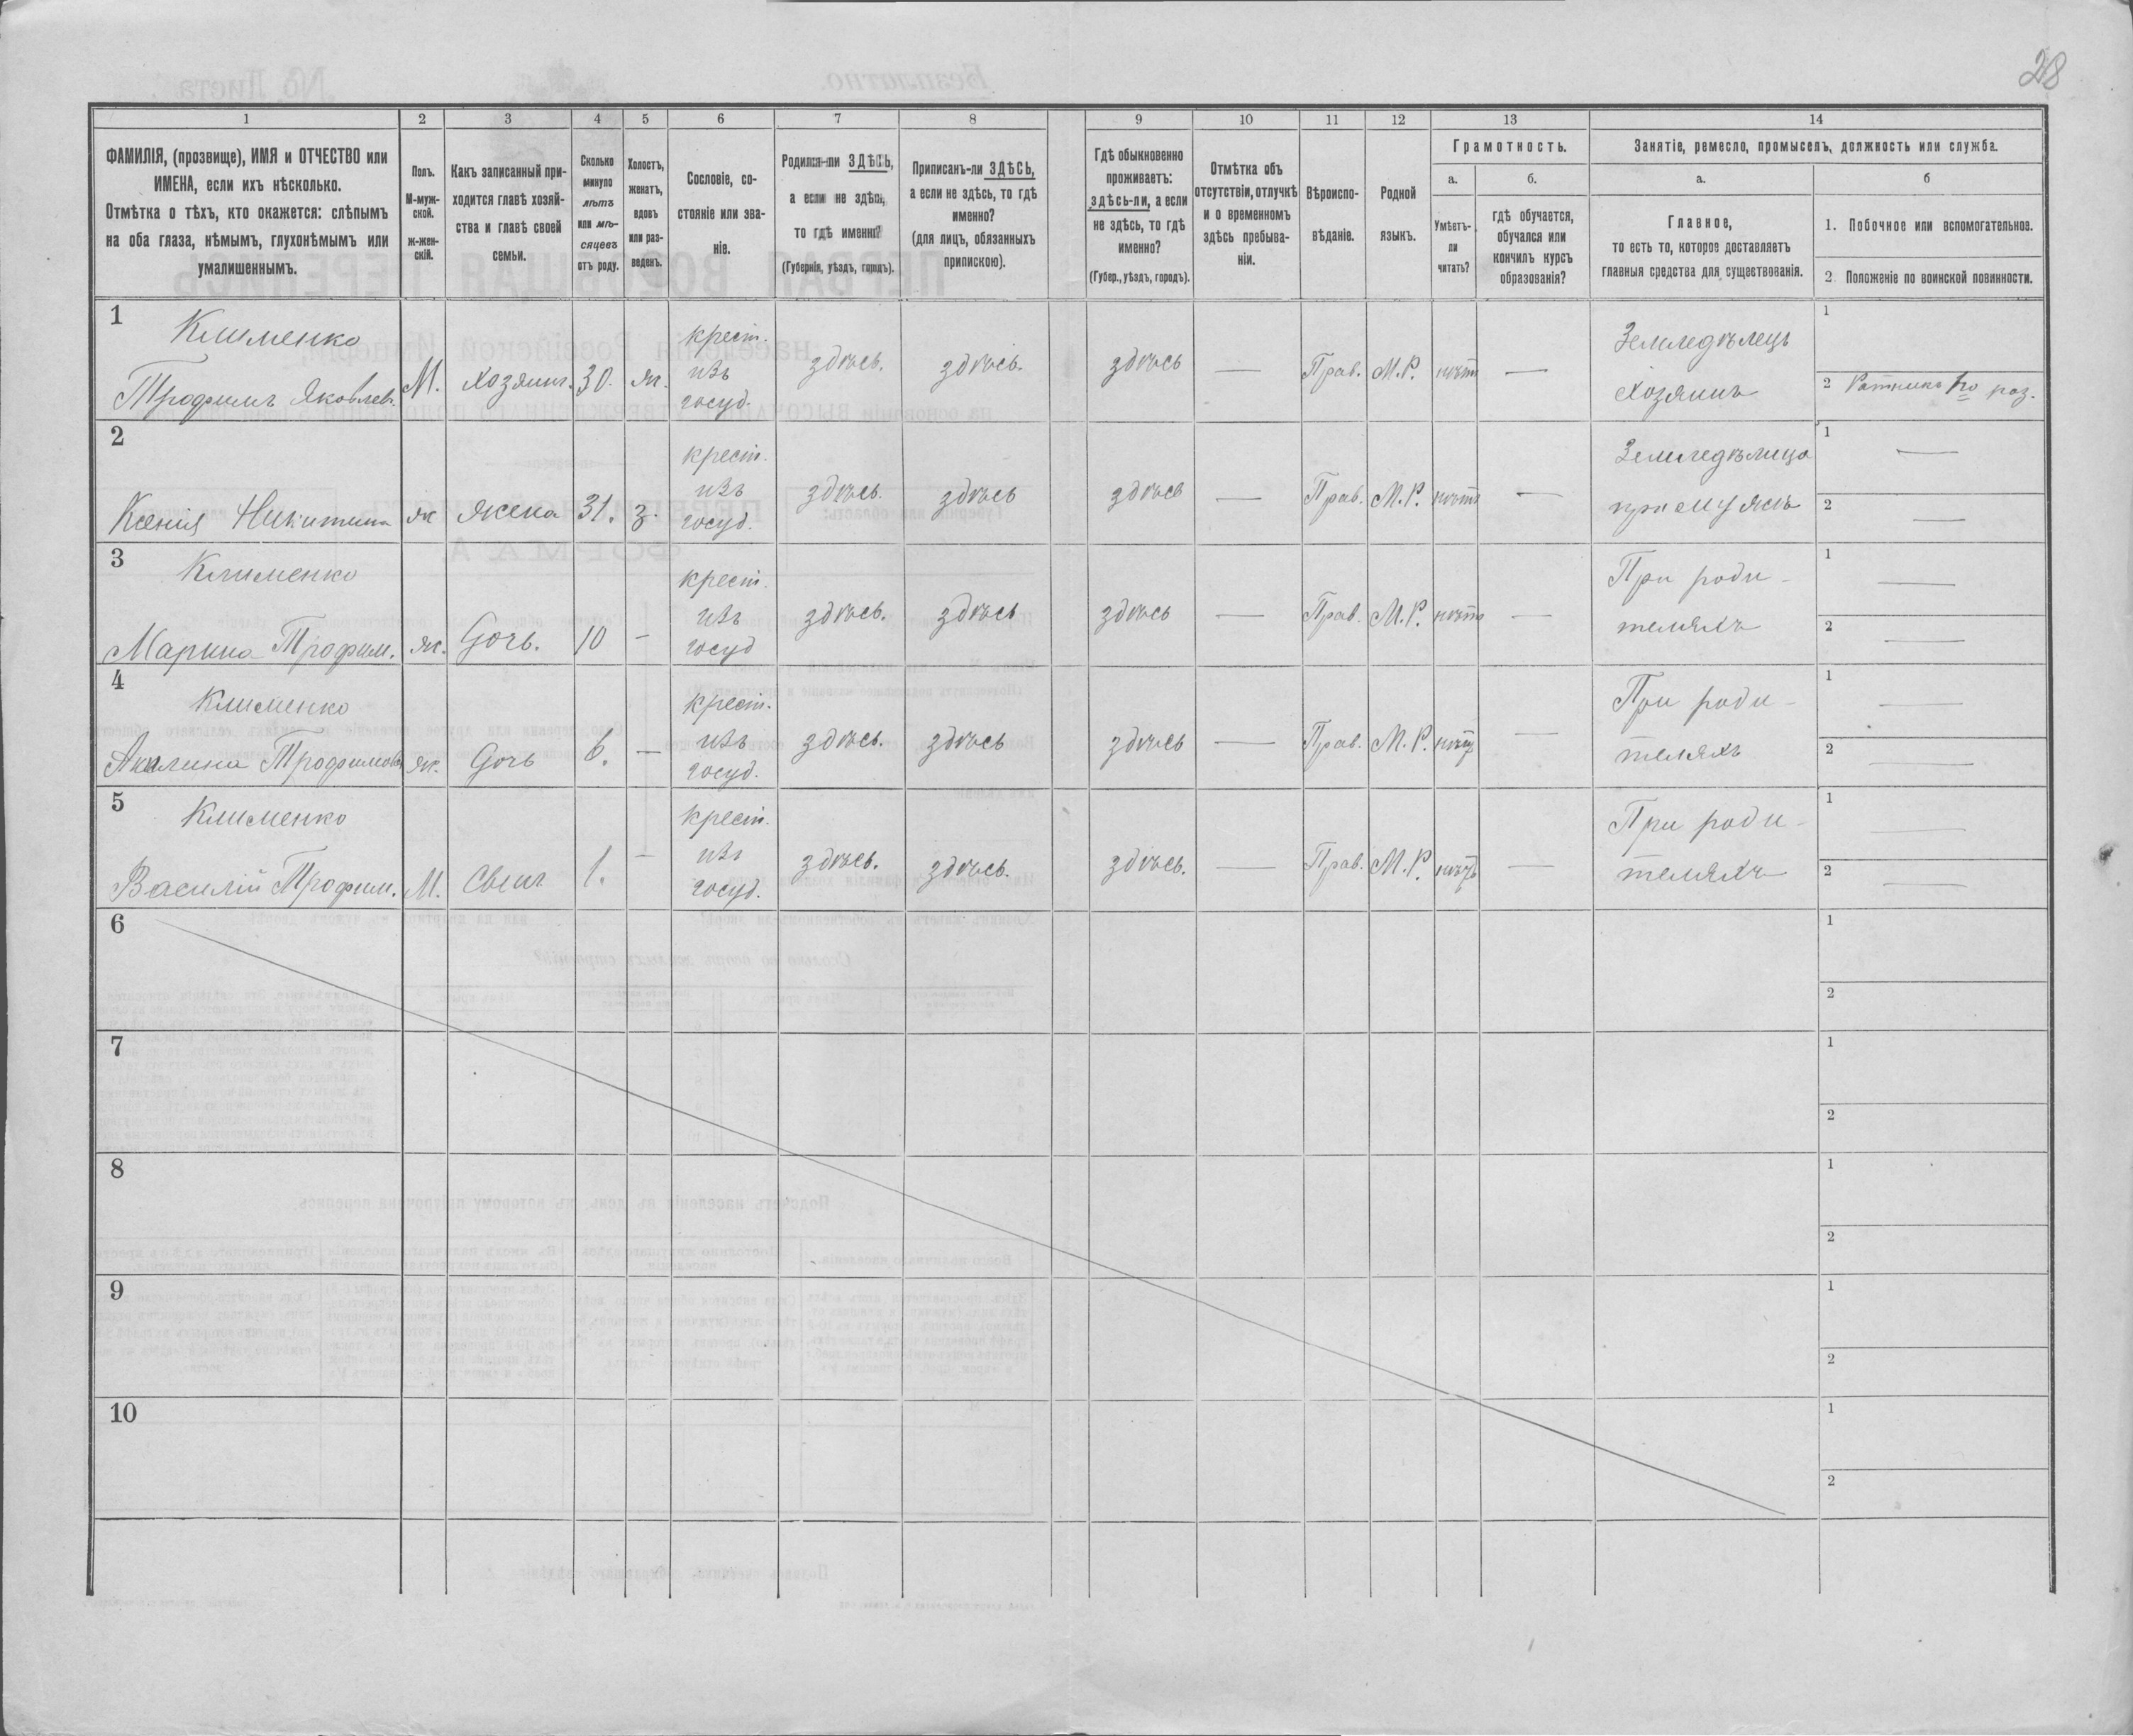 28
1 2 3 4 5 6 7 8 9 10 11 12 13 14
ФАМИЛІЯ, (прозвище), ИМЯ и ОТЧЕСТВО или
ИМЕНА, если ихъ нѣсколько.
Отмѣтка о тѣхъ, кто окажется: слѣпымъ
на оба глаза, нѣмымъ, глухонѣмымъ или
умалишеннымъ.
Полъ.
М-муж-
ской.
Ж-жен-
скій.
Какъ записанный при-
ходится главѣ хозяй-
ства и главѣ своей
семьи.
Сколько
минуло
лѣтъ
или мѣ-
сяцевъ
отъ роду.
Холостъ,
женатъ,
вдовъ
или раз-
веденъ.
Сословіе, со-
стояніе или зва-
ніе.
Родился-ли ЗДѢСЬ,
а если не здѣсь,
то гдѣ именно?
(Губернія, уѣздъ, городъ).
Приписанъ-ли ЗДѢСЬ,
а если не здѣсь, то гдѣ
именно?
(для лицъ, обязанныхъ
припискою).
Гдѣ обыкновенно
проживаетъ:
здѣсь-ли, а если
не здѣсь, то гдѣ
именно?
(Губер., уѣздъ, городъ).
Отмѣтка объ
отсутствіи, отлучкѣ
и о временномъ
здѣсь пребыва-
ніи.
Вѣроиспо-
вѣданіе.
Родной
языкъ.
Грамотность.
а.
Умѣетъ-
ли
читать?
б.
гдѣ обучается,
обучался или
кончилъ курсъ
образованія?
Занятіе, ремесло, промыселъ, должность или служба.
а.
Главное,
то есть то, которое доставляетъ
главныя средства для существованія.
б
1. Побочное или вспомогательное.
2. Положеніе по воинской повинности.
1
Клименко
Трофимъ Яковлев.
М.
хозяинъ.
30.
ж.
крест.
изъ
госуд.
здѣсь.
здѣсь.
здѣсь
—
Прав.
М.Р.
нѣтъ
—
Земледѣлецъ
Хозяинъ
1
2 Ратникъ 1го раз.
2
Ксенія Никитина
ж
жена
31.
з.
крест.
изъ
госуд.
здѣсь.
здѣсь
здѣсь
—
Прав.
М.Р.
нѣтъ
—
Земледѣлица
при мужѣ
1 —
2 —
3
Клименко
Марина Трофим.
ж.
дочь.
10
-
крест.
изъ
госуд
здѣсь.
здѣсь
здѣсь
—
Прав.
М.Р.
нѣтъ
—
При роди-
теляхъ
1 —
2 —
4
Клименко
Акилина Трофимов
ж.
дочь
6.
—
крест.
изъ
госуд.
здѣсь.
здѣсь
здѣсь
—
Прав.
М.Р.
нѣтъ
—
При роди-
теляхъ
1 —
2 —
5
Клименко
Василій Трофим.
М.
Сынъ
1.
—
крест.
изъ
госуд.
здѣсь.
здѣсь.
здѣсь.
—
Прав.
М.Р.
нѣтъ
—
При роди-
теляхъ
1 —
2 —
6
1
2
7
1
2
8
1
2
9
1
2
10
1
2